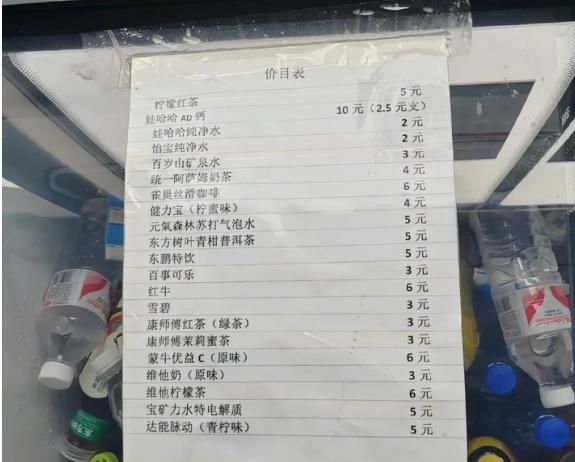 价目表
柠檬红茶 5 元
娃哈哈 AD 钙 10 元（2.5 元支）
娃哈哈纯净水 2 元
怡宝纯净水 2 元
百岁山矿泉水 3 元
统一阿萨姆奶茶 4 元
雀巢丝滑咖啡 6 元
健力宝（柠蜜味） 4 元
元氣森林苏打气泡水 5 元
东方树叶青柑普洱茶 5 元
东鹏特饮 5 元
百事可乐 3 元
红牛 6 元
雪碧 3 元
康师傅红茶（绿茶） 3 元
康师傅茉莉蜜茶 3 元
蒙牛优益 C（原味） 6 元
维他奶（原味） 3 元
维他柠檬茶 6 元
宝矿力水特电解质 5 元
达能脉动（青柠味） 5 元